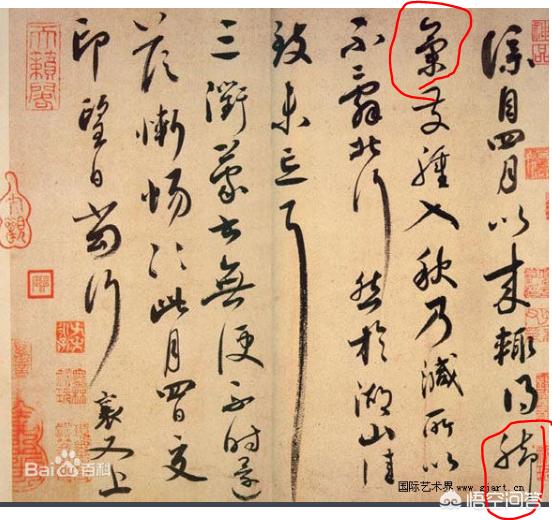 僕自四月以来輒得脚
氣發腫入秋乃減所以
不辭北行然於湖山佳
致未忘耳
三衢蒙書無便不時還
答慚惕〻此月四日交
印望日當行襄又上
天籟閣
Bai百科
国际艺术界 www.gjart.cn
悟空问答